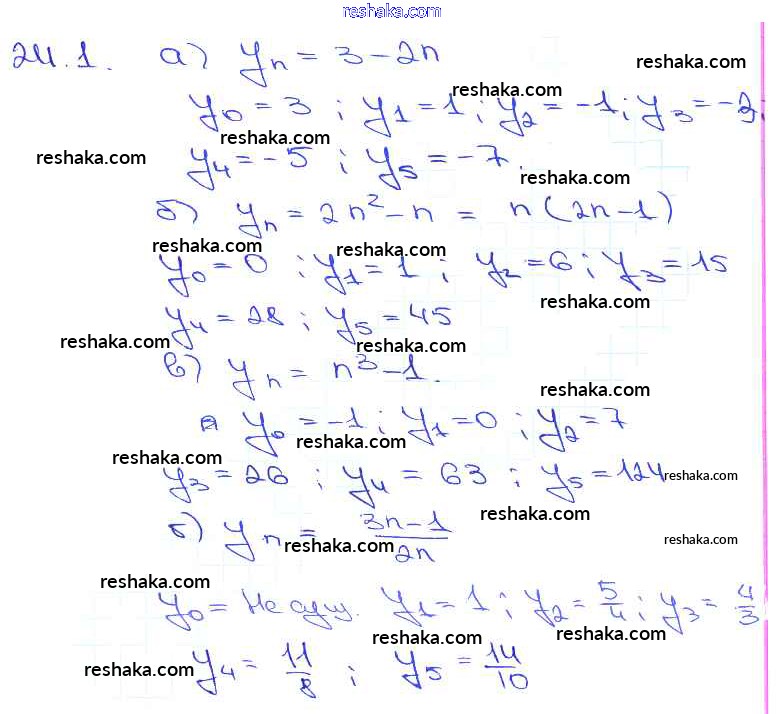 reshaka.com
24.1. а) yn = 3 - 2n
reshaka.com
reshaka.com
y0 = 3 ; y1 = 1 ; y2 = -1 ; y3 = -3 ;
reshaka.com
reshaka.com
y4 = -5 ; y5 = -7.
reshaka.com
б) yn = 2n² - n = n(2n-1)
reshaka.com
reshaka.com
y0 = 0 ; y1 = 1 ; y2 = 6 ; y3 = 15
reshaka.com
y4 = 28 ; y5 = 45
reshaka.com
reshaka.com
в) yn = n³ - 1.
reshaka.com
y0 = -1 ; y1 = 0 ; y2 = 7
reshaka.com
reshaka.com
y3 = 26 ; y4 = 63 ; y5 = 124
reshaka.com
reshaka.com
б) yn = (3n-1)/2n
reshaka.com
reshaka.com
reshaka.com
y0 = Не сущ. y1 = 1 ; y2 = 5/4 ; y3 = 4/3
reshaka.com
reshaka.com
y4 = 11/8 ; y5 = 14/10
reshaka.com